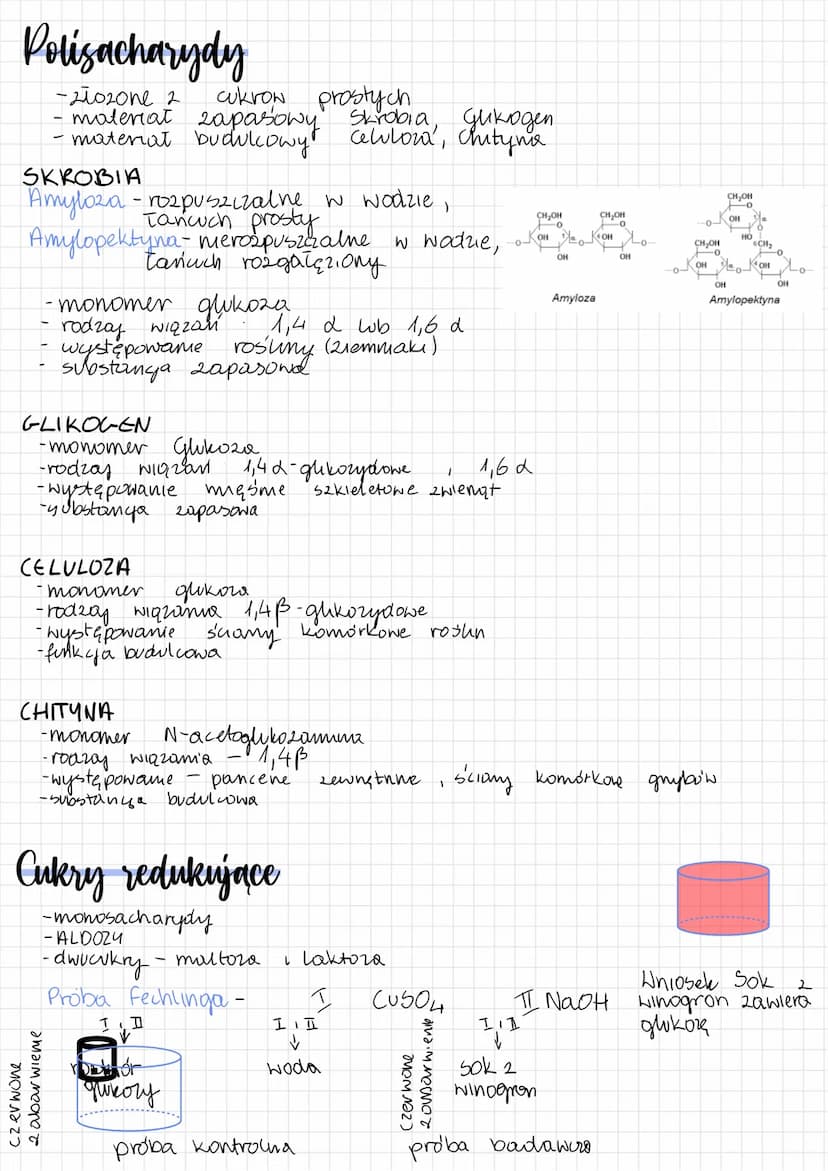 Polisacharydy
- złożone z cukrów prostych
- materiał zapasowy skrobia, Glikogen
- materiał budulcowy celuloza, chityna
SKROBIA
Amyloza - rozpuszczalne w wodzie,
łańcuch prosty
Amylopektyna - nierozpuszczalne w wodzie,
łańcuch rozgałęziony
CH₂OH CH₂OH
O O
-O OH O OH O-
OH OH
Amyloza
CH₂OH
O
-O OH
HO O
CH₂OH ⁶CH₂
O O
-O OH O ⁴OH O-
OH OH
Amylopektyna
- monomer glukoza
- rodzaj wiązań 1,4 α lub 1,6 α
- występowanie rośliny (ziemniaki)
- substancja zapasowa
GLIKOGEN
- monomer Glukoza
- rodzaj wiązań 1,4 α-glikozydowe , 1,6 α
- występowanie mięśnie szkieletowe zwierząt
- substancja zapasowa
CELULOZA
- monomer glukoza
- rodzaj wiązania 1,4 β-glikozydowe
- występowanie ściany komórkowe roślin
- funkcja budulcowa
CHITYNA
- monomer N-acetoglukozamina
- rodzaj wiązania - 1,4 β
- występowanie - pancerze zewnętrzne , ściany komórkowe grzybów
- substancja budulcowa
Cukry redukujące
- monosacharydy
- ALDOZY
- dwucukry - maltoza i laktoza
Próba Fechlinga - I CuSO₄ II NaOH
I , II
↓
roztwór
glukozy
czerwone
zabarwienie
I , II
↓
woda
próba kontrolna
I , II
↓
sok z
winogron
czerwone
zabarwienie
próba badawcza
Wniosek Sok z
winogron zawiera
glukozę